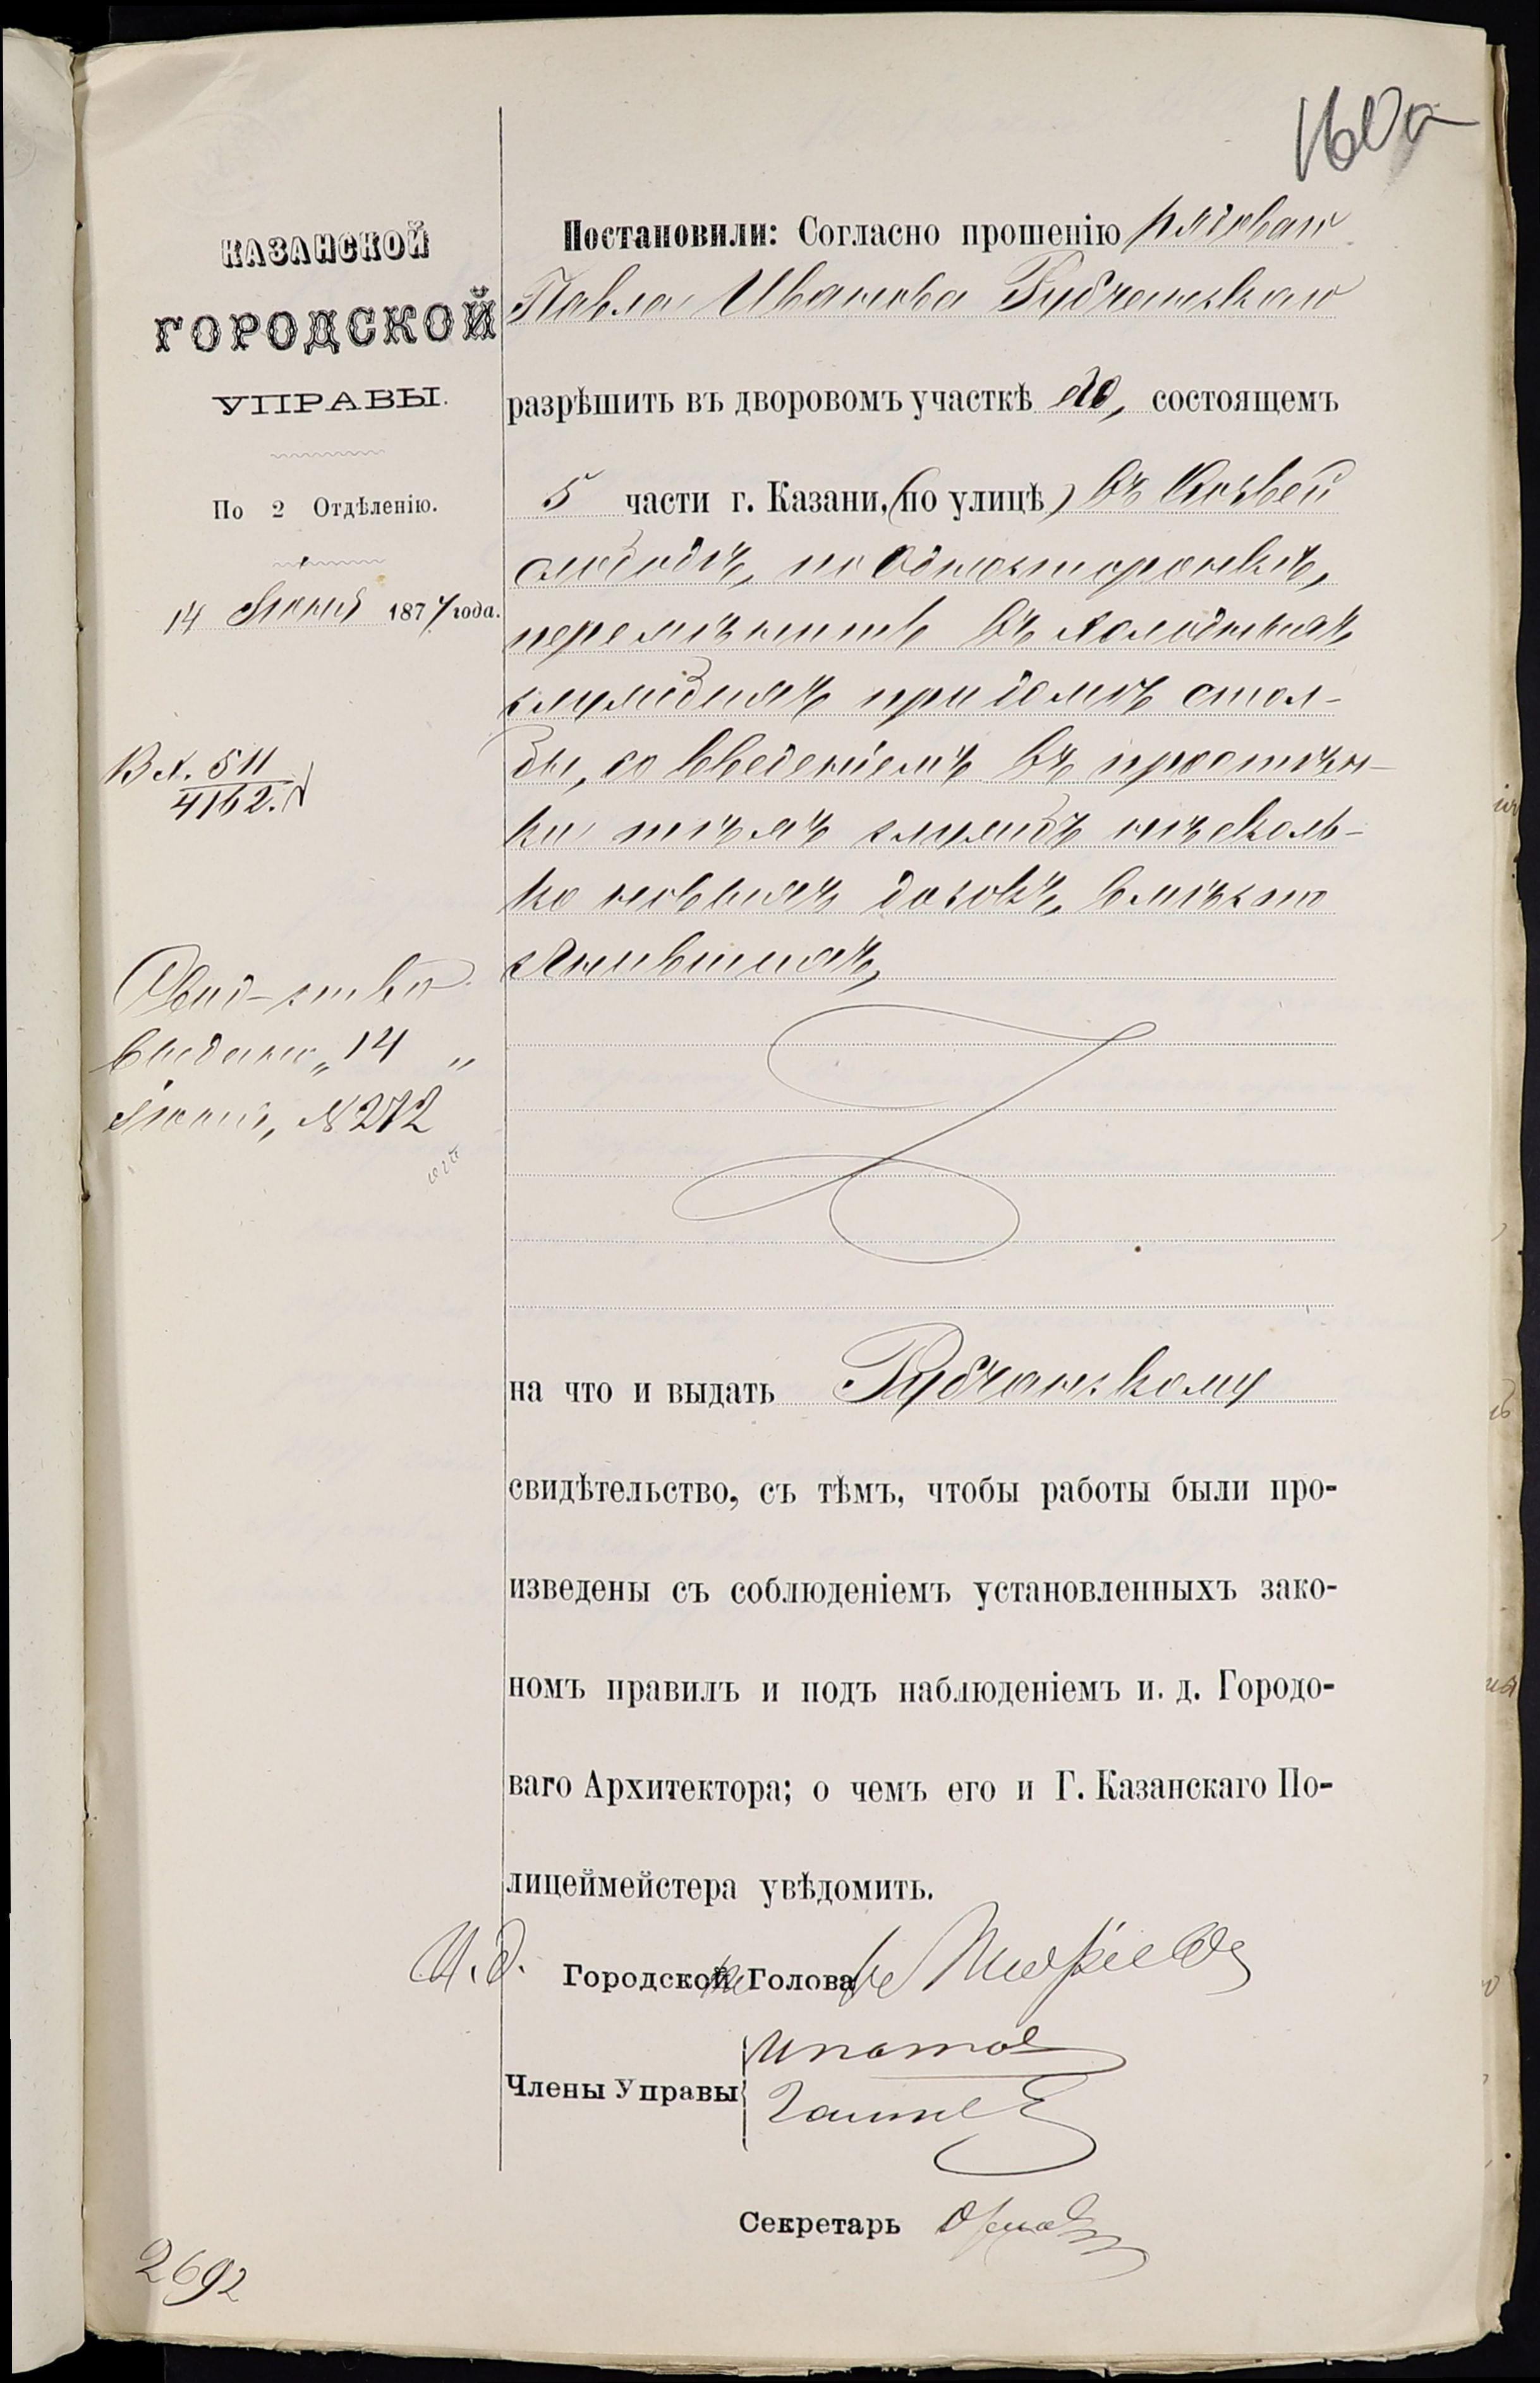 160а
КАЗАНСКОЙ
ГОРОДСКОЙ
УПРАВЫ.
По 2 Отдѣленію.
14 Іюня 1877 года.
Вх. 511
4162.
Свид-ство
выдано „14„
Іюня, № 272
Постановили: Согласно прошенію рядоваго
Павла Иванова Рубчанскаго
разрѣшить въ дворовомъ участкѣ его, состоящемъ
5 части г. Казани, (по улицѣ) въ
слободѣ, по Односторонкѣ,
перемѣнить въ холодныхъ
службахъ при домѣ стол-
бы, со введеніемъ въ простѣн-
ки тѣхъ службъ нѣсколь-
ко новыхъ досокъ, вмѣсто
сгнившихъ,
на что и выдать Рубчанскому
свидѣтельство, съ тѣмъ, чтобы работы были про-
изведены съ соблюденіемъ установленныхъ зако-
номъ правилъ и подъ наблюденіемъ и. д. Городо-
ваго Архитектора; о чемъ его и Г. Казанскаго По-
лицеймейстера увѣдомить.
И. д. Городской Голова
Члены Управы Ипатов
Секретарь
2692